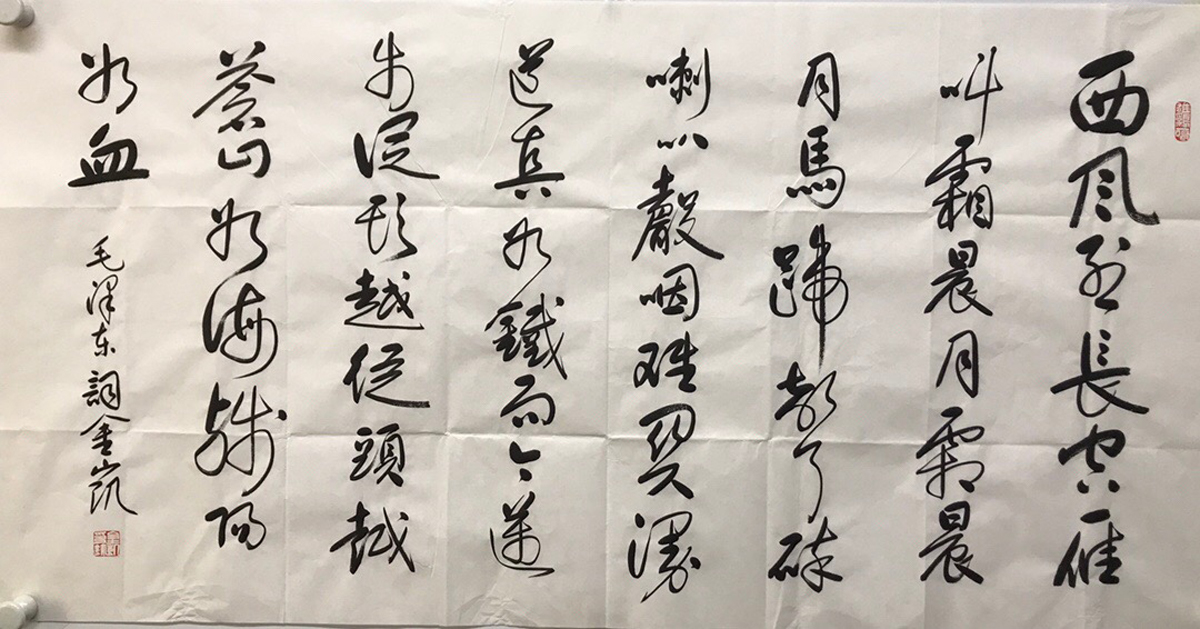 西风烈長空雁
叫霜晨月霜晨
月馬蹄聲碎
喇叭聲咽雄關漫
道真如鐵而今邁
步從頭越從頭越
蒼山如海殘陽
如血
毛澤东詞金凱